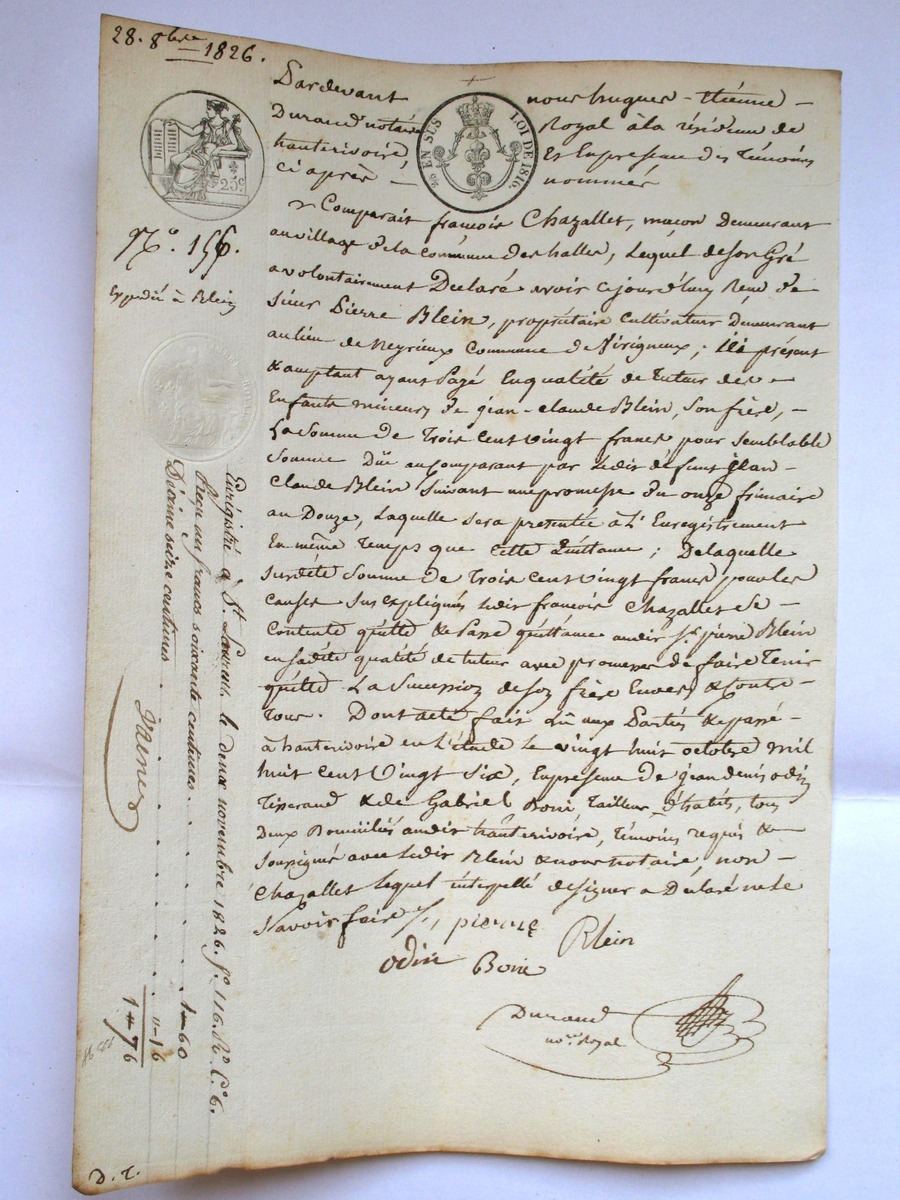 28. 8bre 1826.
Pardevant nous hugues - Etienne -
Durand notaire Royal à la résidence de
hauterivoire, Et En presence des Témoins
Ci après - nommés
25c
EN SUS LOI DE 1816.
N.o 156.
Expedié à Blein
Comparait françois Chazallet, maçon Demeurant
au village de la commune des halles, Lequel de son Gré
a volontairement Declaré avoir cejourd'huy Reçu de
sieur Pierre Blein, propriétaire Cultivateur Demeurant
au lieu de Neyrieux Commune de Virigneux; ici présent
& acceptant ayant Payé En qualité de Tuteur des -
Enfants mineurs de jean-claude Blein, son frère, -
La somme de Trois Cent vingt francs pour semblable
somme Düe au Comparant par Ledit défunt jean-
Claude Blein suivant une promesse du onze frimaire
an Douze, Laquelle sera presentée à L'Enregistrement
En même Temps que cette Quittance; De laquelle
susdite somme de Trois Cent vingt francs pour les
causes sus expliquées Ledit françois Chazallet se -
contente quitte & Passe quittance audit Sr pierre Blein
en sadite qualité de tuteur avec promesse de faire Tenir
quitte La Succession de son frère Envers & Contre
Tous. Dont acte fait Lû aux Parties & passé -
à hauterivoire en L'étude Le vingt huit octobre mil
huit cent Vingt Six, En presence de jean denis odin
Tisserand & de Gabriel Boni Tailleur d'habits, tous
deux Domiciliés audit hauterivoire, Témoins requis &
soussignés avec Ledit Blein & nous notaire non -
Chazallet lequel interpellé de signer a Déclaré ne le
savoir faire ./.
pierre Blein
odin Boni
Durand
not.re Royal
Enregistré à St Laurent le deux novembre 1826. f.o 116. R.o C.e 6.
Reçu un francs soixante centimes . . . . 1-60
Décime seize centimes . . . . "-16
1-76
D. T.